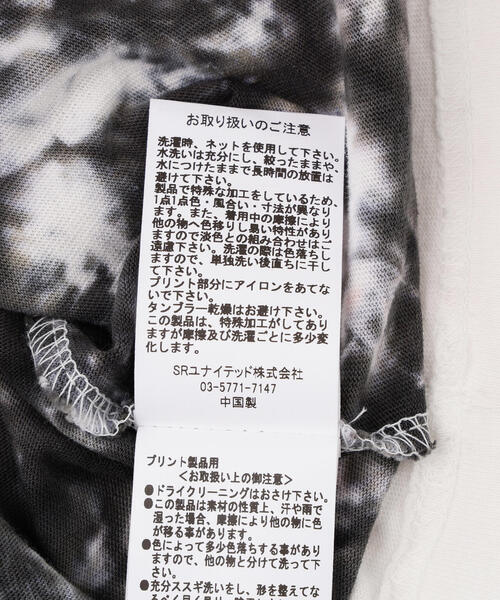 お取り扱いのご注意
洗濯時、ネットを使用して下さい。
水洗いは充分にし、絞ったままや、
水につけたままで長時間の放置は
避けて下さい。
製品で特殊な加工をしているため、
1点1点色・風合い・寸法が異なり
ます。また、着用中の摩擦により
他の物へ色移りし易い特性があり
ますので淡色との組み合わせはご
遠慮下さい。洗濯の際は色落ちし
ますので、単独洗い後直ちに干し
て下さい。
プリント部分にアイロンをあてな
いで下さい。
タンブラー乾燥はお避け下さい。
この製品は、特殊加工がしてあり
ますが摩擦及び洗濯ごとに多少変
化します。
SRユナイテッド株式会社
03-5771-7147
中国製
プリント製品用
＜お取扱い上の御注意＞
●ドライクリーニングはおさけ下さい。
●この製品は素材の性質上、汗や雨で
湿った場合、摩擦により他の物に色
が移る事があります。
●色によって多少色落ちする事があり
ますので、他の物と分けて洗って下
さい。
●充分ススギ洗いをし、形を整えてな